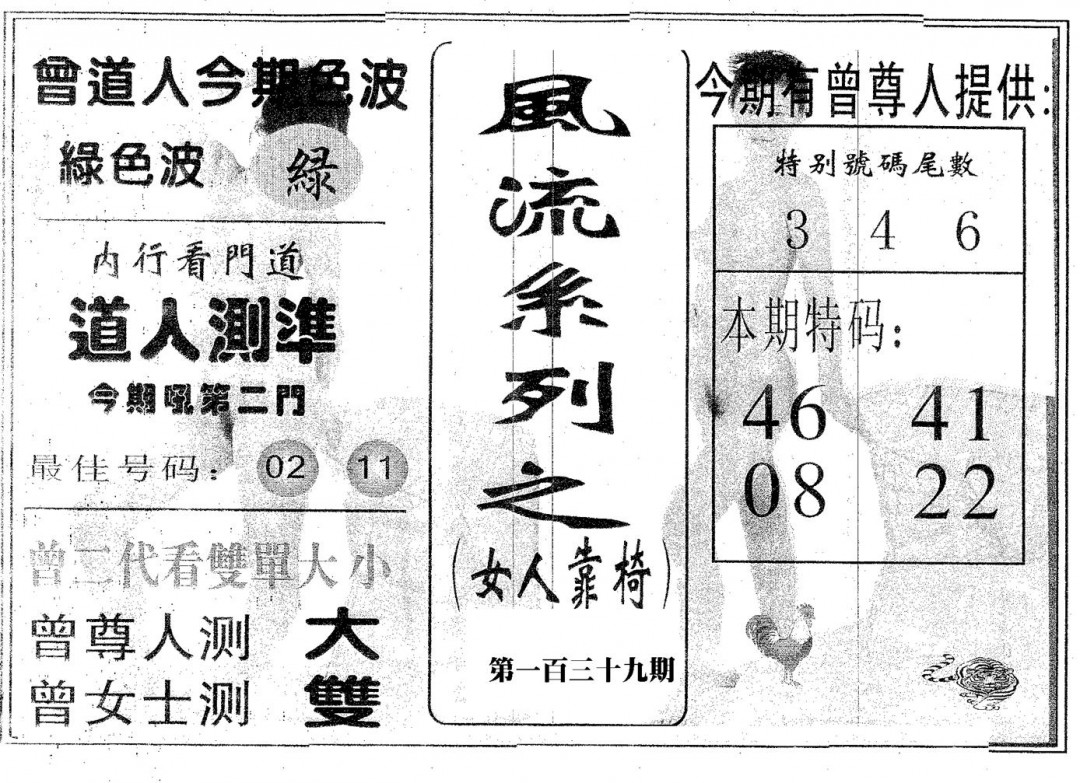 曾道人今期色波
綠色波 緑
内行看門道
道人測準
今期吼第二門
最佳号码：02 11
曾二代看雙單大小
曾尊人测 大
曾女士测 雙
風流系列之
（女人靠椅）
第一百三十九期
今期有曾尊人提供:
特别號碼尾數
3 4 6
本期特码：
46 41
08 22